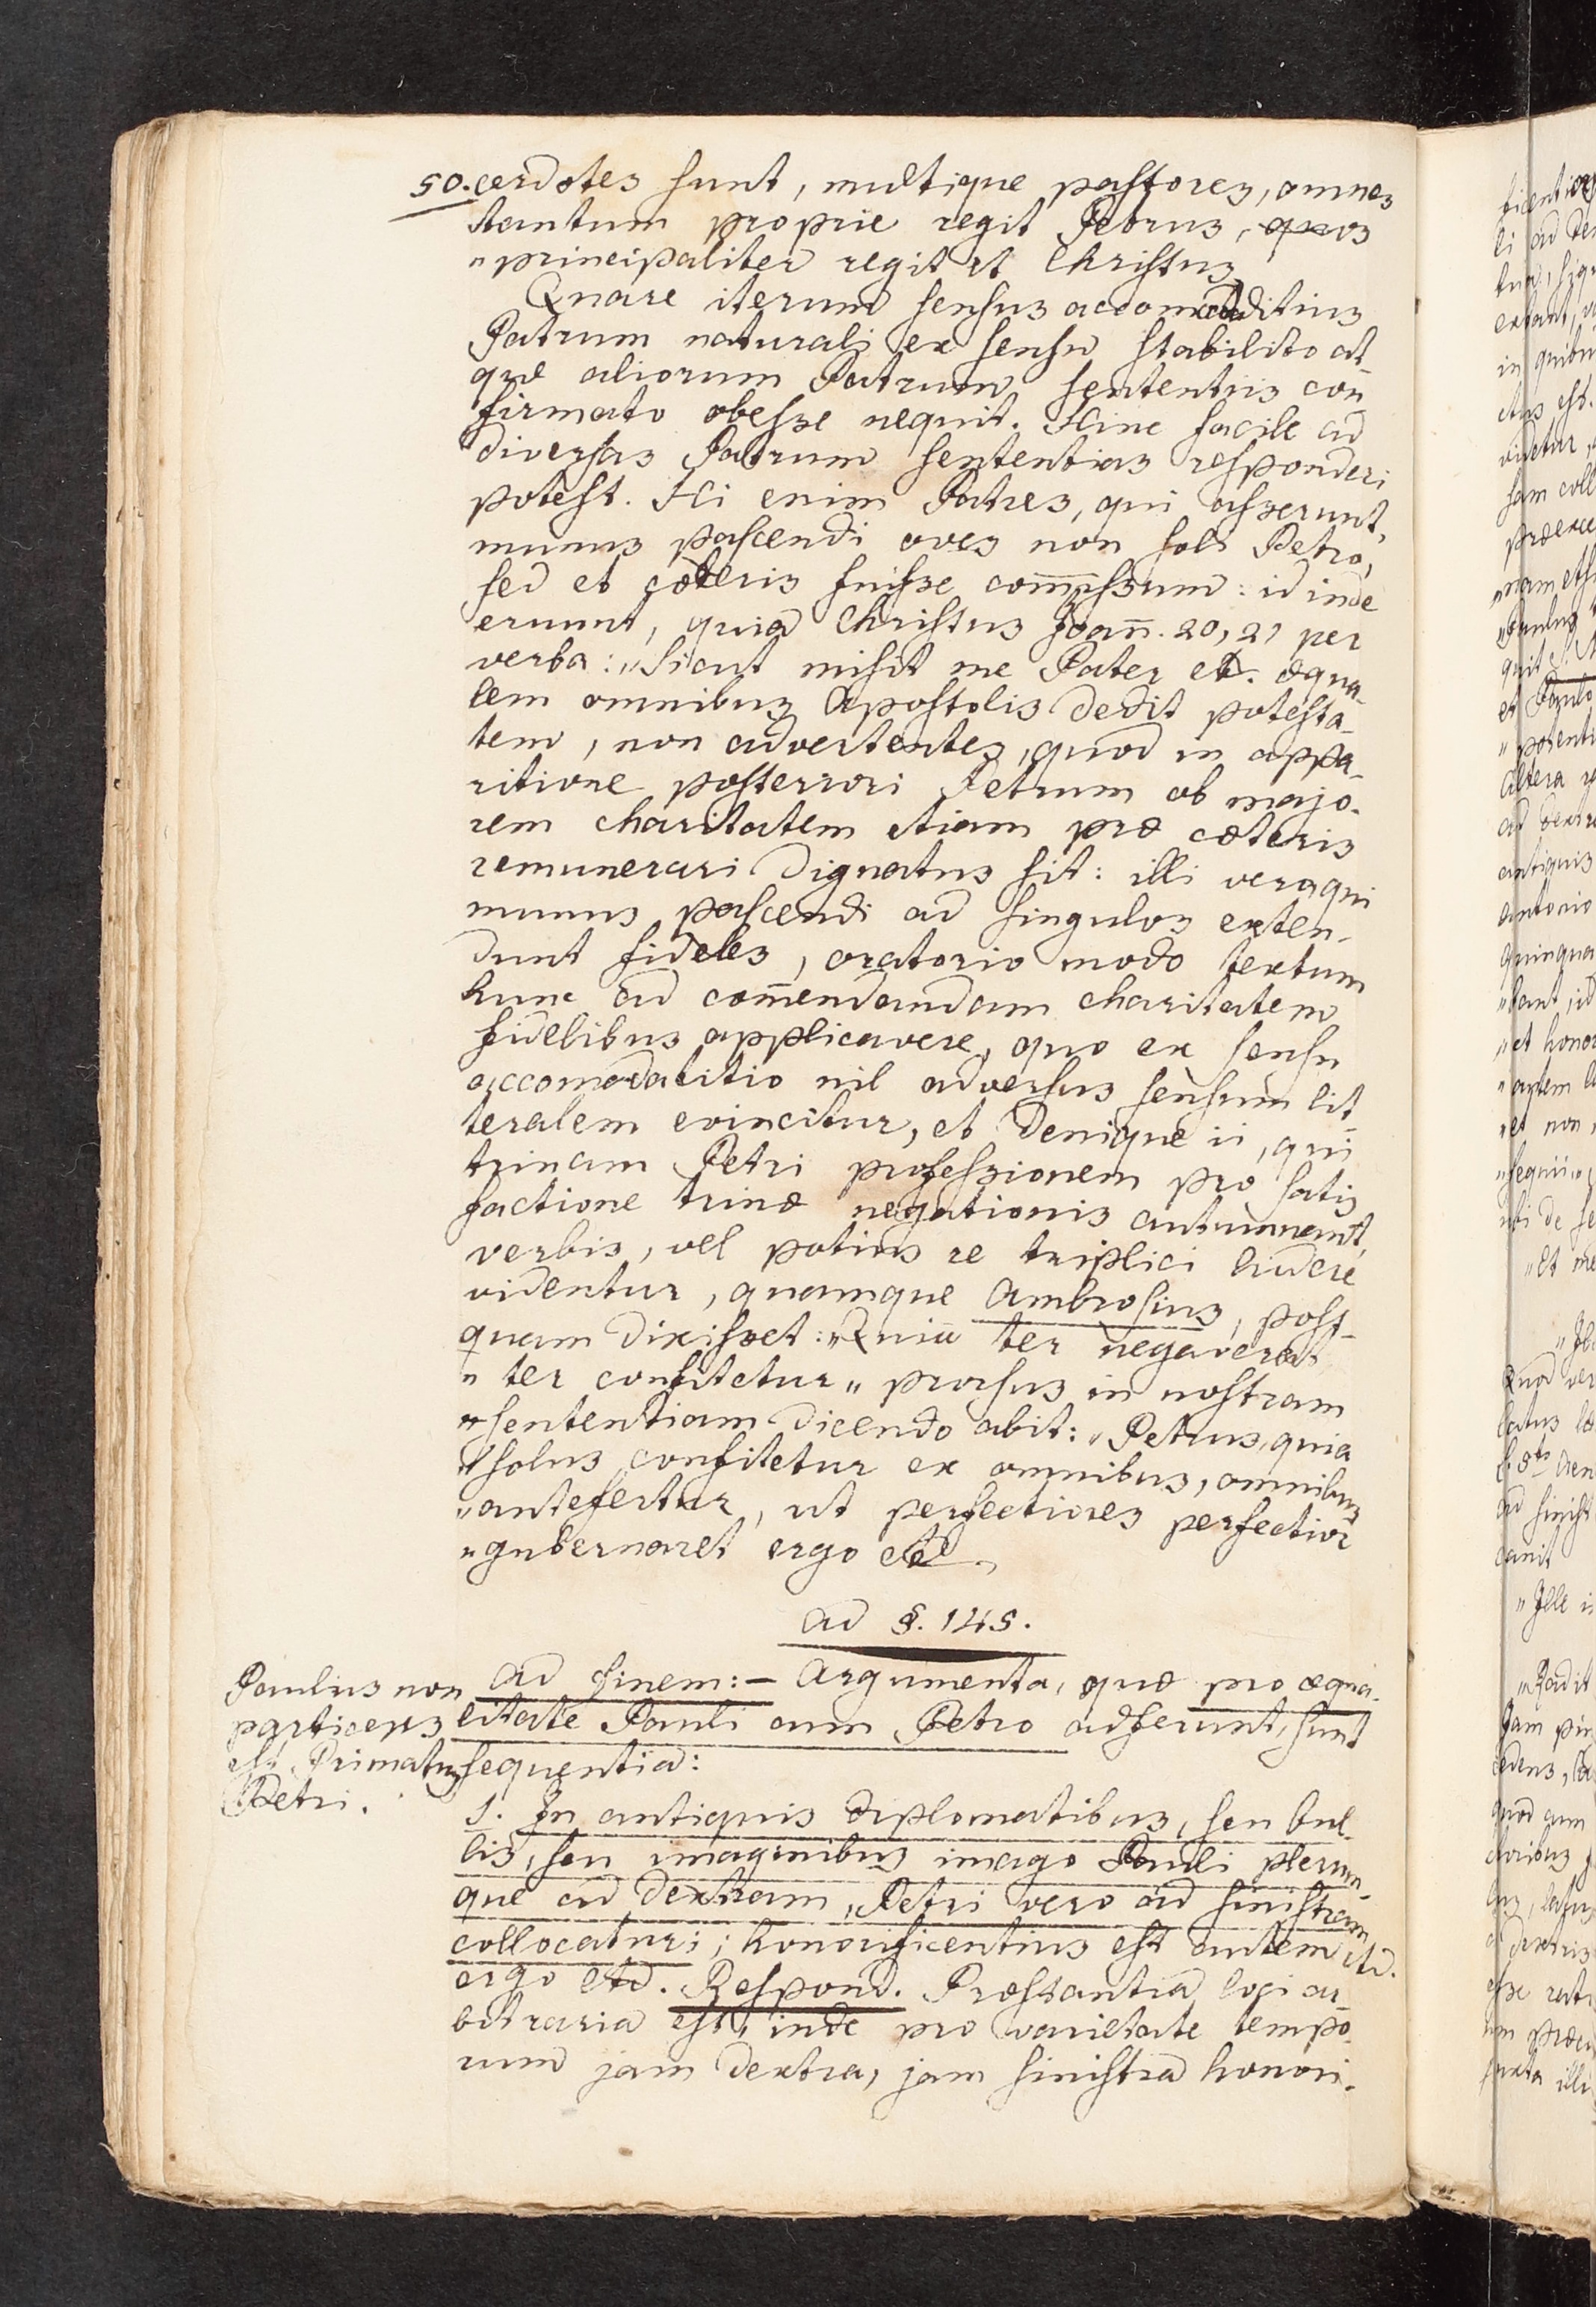 50. cerdotes sunt, multique pastores, omnes
tantum proprie regit Petrus, quos
„principaliter regit et Christus
Quare iterum sensus accomoditius
Patrum naturali ex sensu stabilito at-
que aliorum Patrum sententiis con
firmato obesse nequit. Hinc facile ad
diversas Patrum sententias responderi
potest. Hi enim Patres, qui asserunt,
munus pascendi oves non soli Petro,
sed et cæteris fuisse com̄issum: id inde
eruunt, quia Christus Joan̄. 20, 21 per
verba: „Sicut misit me Pater etc. æqua-
lem omnibus Apostolis dedit potesta-
tem, non advertentes, quod in appa-
ritione posteriori Petrum ob majo-
rem charitatem etiam præ cæteris
remunerari dignatus sit: illi vera qui
munus pascendi ad singulos exten-
dunt fideles, oratorio modo textum
hunc ad com̄endandam charitatem
fidelibus applicavere, quo ex sensu
accomodatitio nil adversus sensum lit-
teralem evincitur, et denique ii, qui
trinam Petri professionem pro satis
factione trinæ negationis autumnant,
verbis, vel potius re triplici ludere
videntur, quamque Ambrosius, post-
quam dixisset: „Quia ter negaverat
„ter confitetur„ prorsus in nostram
„sententiam dicendo abit: „Petrus, quia
„solus confitetur ex omnibus, omnibus
„antefertur, ut perfectiores perfectior
„gubernaret ergo etc.
Ad §. 145.
Paulus non
particeps
est Primatus
Petri.
Ad finem: – Argumenta, quæ pro æqua-
litate Pauli cum Petro adferunt, sunt
sequentia:
1. In antiquis diplomatibus, seu bul-
lis, seu imaginibus imago Pauli plerum-
que ad dextram, Petri vero ad sinistram
collocatur; honorificentius est autem etc.
ergo etc. Respond. Præstantia loci ar-
bitraria est, inde pro varietate tempo-
rum jam dextra, jam sinistra honori-